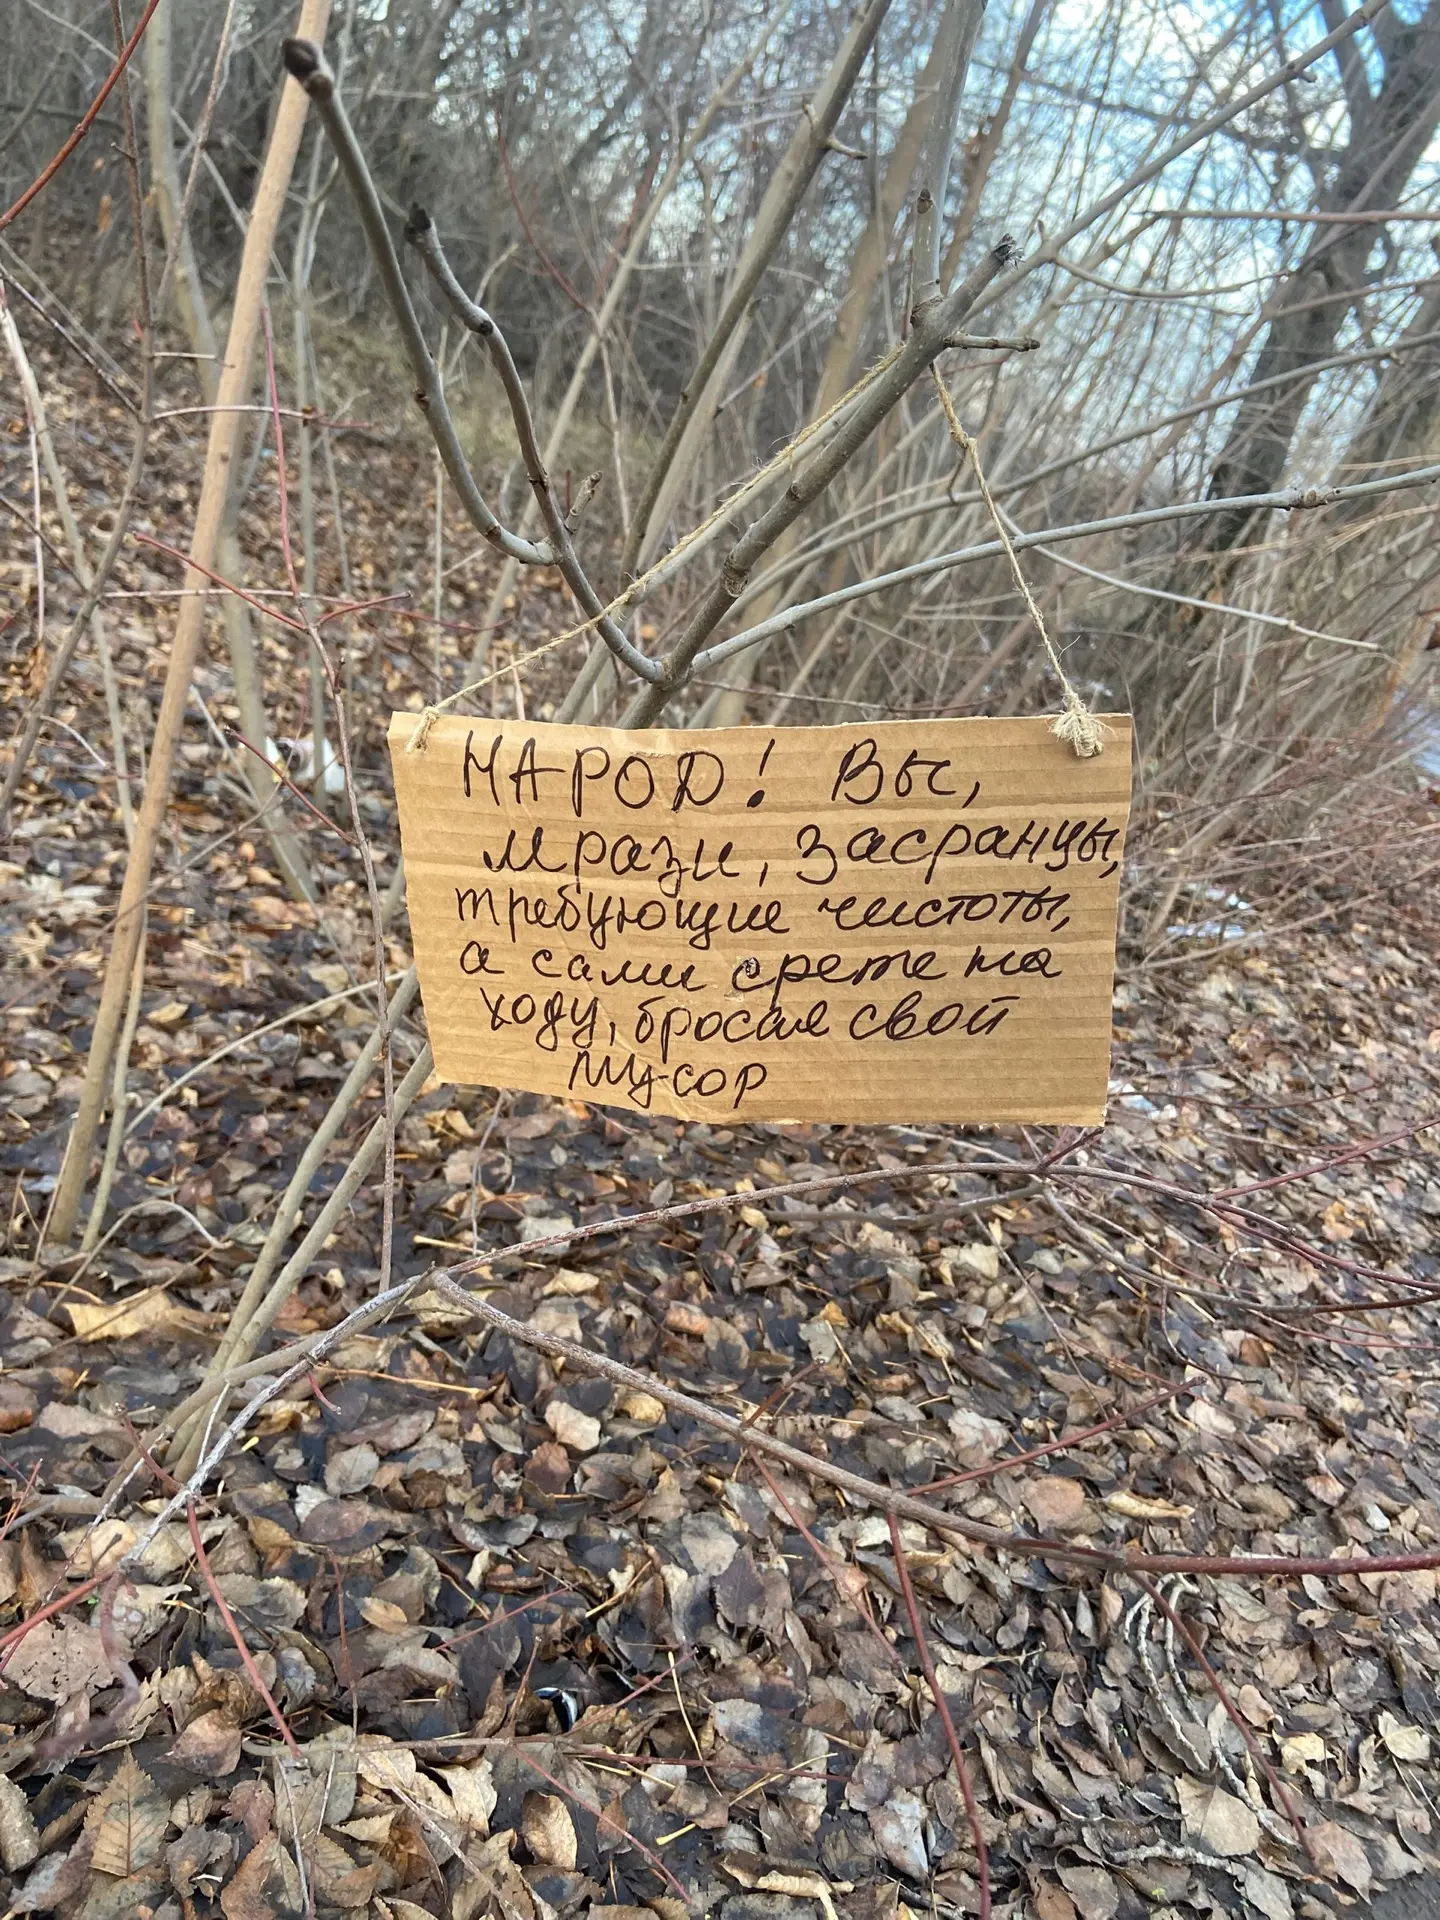 НАРОД! Вы,
мрази, засранцы,
требующие чистоты,
а сами срете на
ходу, бросая свой
мусор